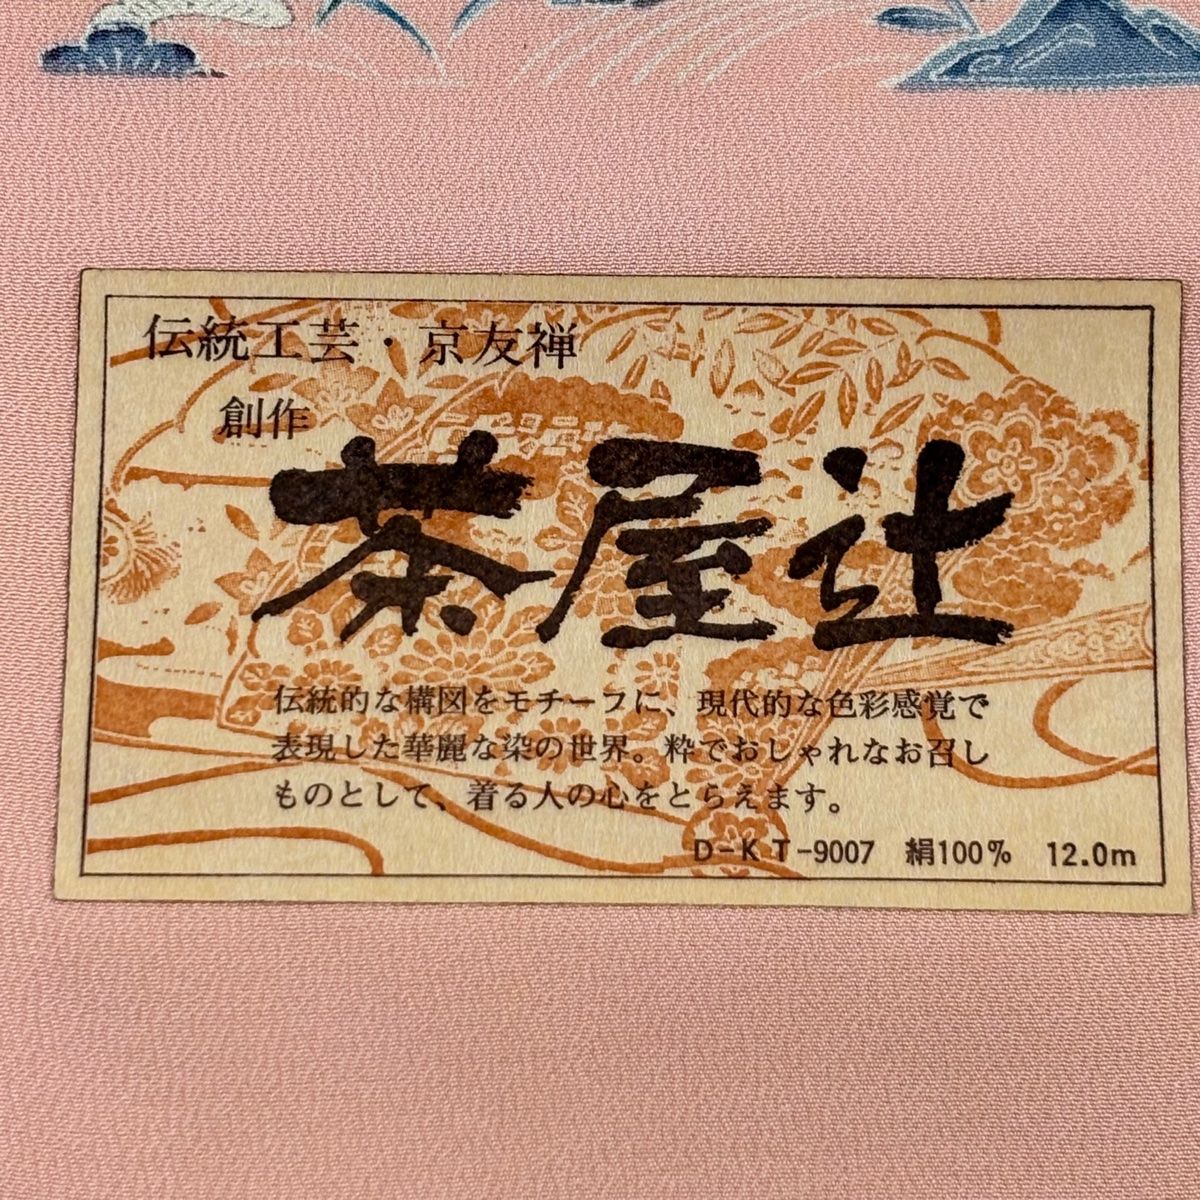 伝統工芸・京友禅
創作
茶屋辻
伝統的な構図をモチーフに、現代的な色彩感覚で
表現した華麗な染の世界。粋でおしゃれなお召し
ものとして、着る人の心をとらえます。
D-KT-9007 絹100% 12.0m